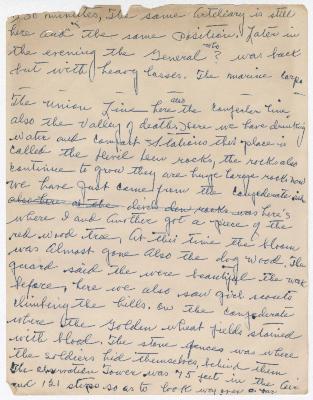 2.30 minutes, The same artiliary is still
here and the same position. Later in
the evening the General ? was back
but with heavy losses. The marine Corps
The union line here also the confederate line
also the Valley of death. Here we have drinking
water and comfort stations this place is
called the Devil Den rocks, the rock also
continue to grow they are huge large rocks now
we have just come from the confederate side
also here at the devils den rocks was here's
where I and another got a piece of the
red wood tree, At this time the bloom
was almost gone Also the dog wood. The
guard said the were beautiful the week
before, here we also saw girl scouts
climbing the hills. On the confederate
where the Golden wheat fields stained
with blood. The stone fences was where
the soldiers hid themselves behind them
The observation Tower was 75 feet in the air
and 121 steps so as to look way over